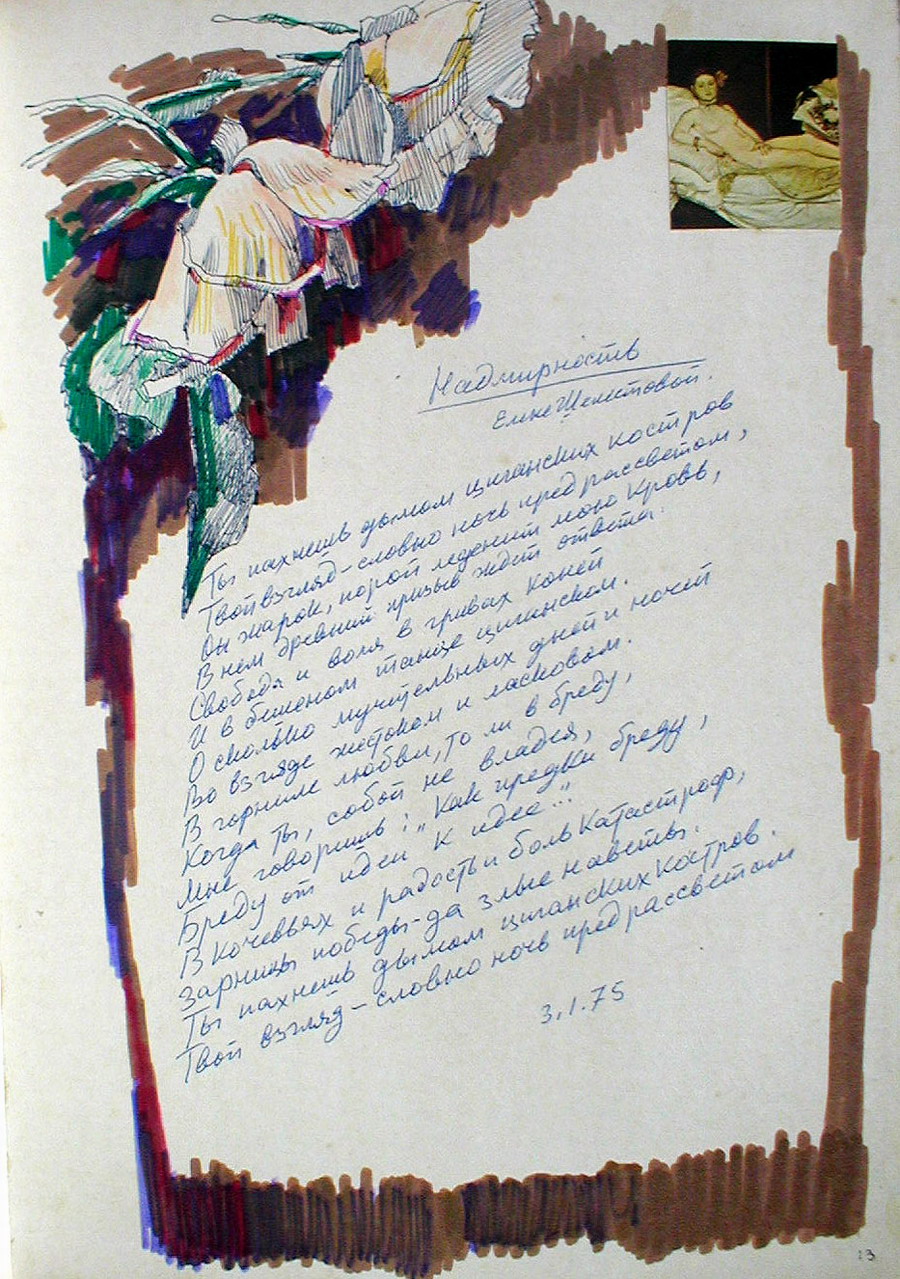 Надмирность
Елке Шелестовой.
Ты пахнешь дымом цыганских костров
Твой взгляд - словно ночь пред рассветом,
Он жарок, порой леденит мою кровь,
В нём древний призыв ждёт ответа.
Свобода и воля в гривах коней
И в бешеном танце цыганском.
О сколько мучительных дней и ночей
Во взгляде жестоком и ласковом.
В горниле любви, то ли в бреду,
Когда ты, собой не владея,
Мне говоришь: "Как предки бреду,
Бреду от идеи к идее..."
В кочевьях и радость и боль катастроф,
Зарницы победы - да злые наветы.
Ты пахнешь дымом цыганских костров.
Твой взгляд - словно ночь пред рассветом
3.1.75
13